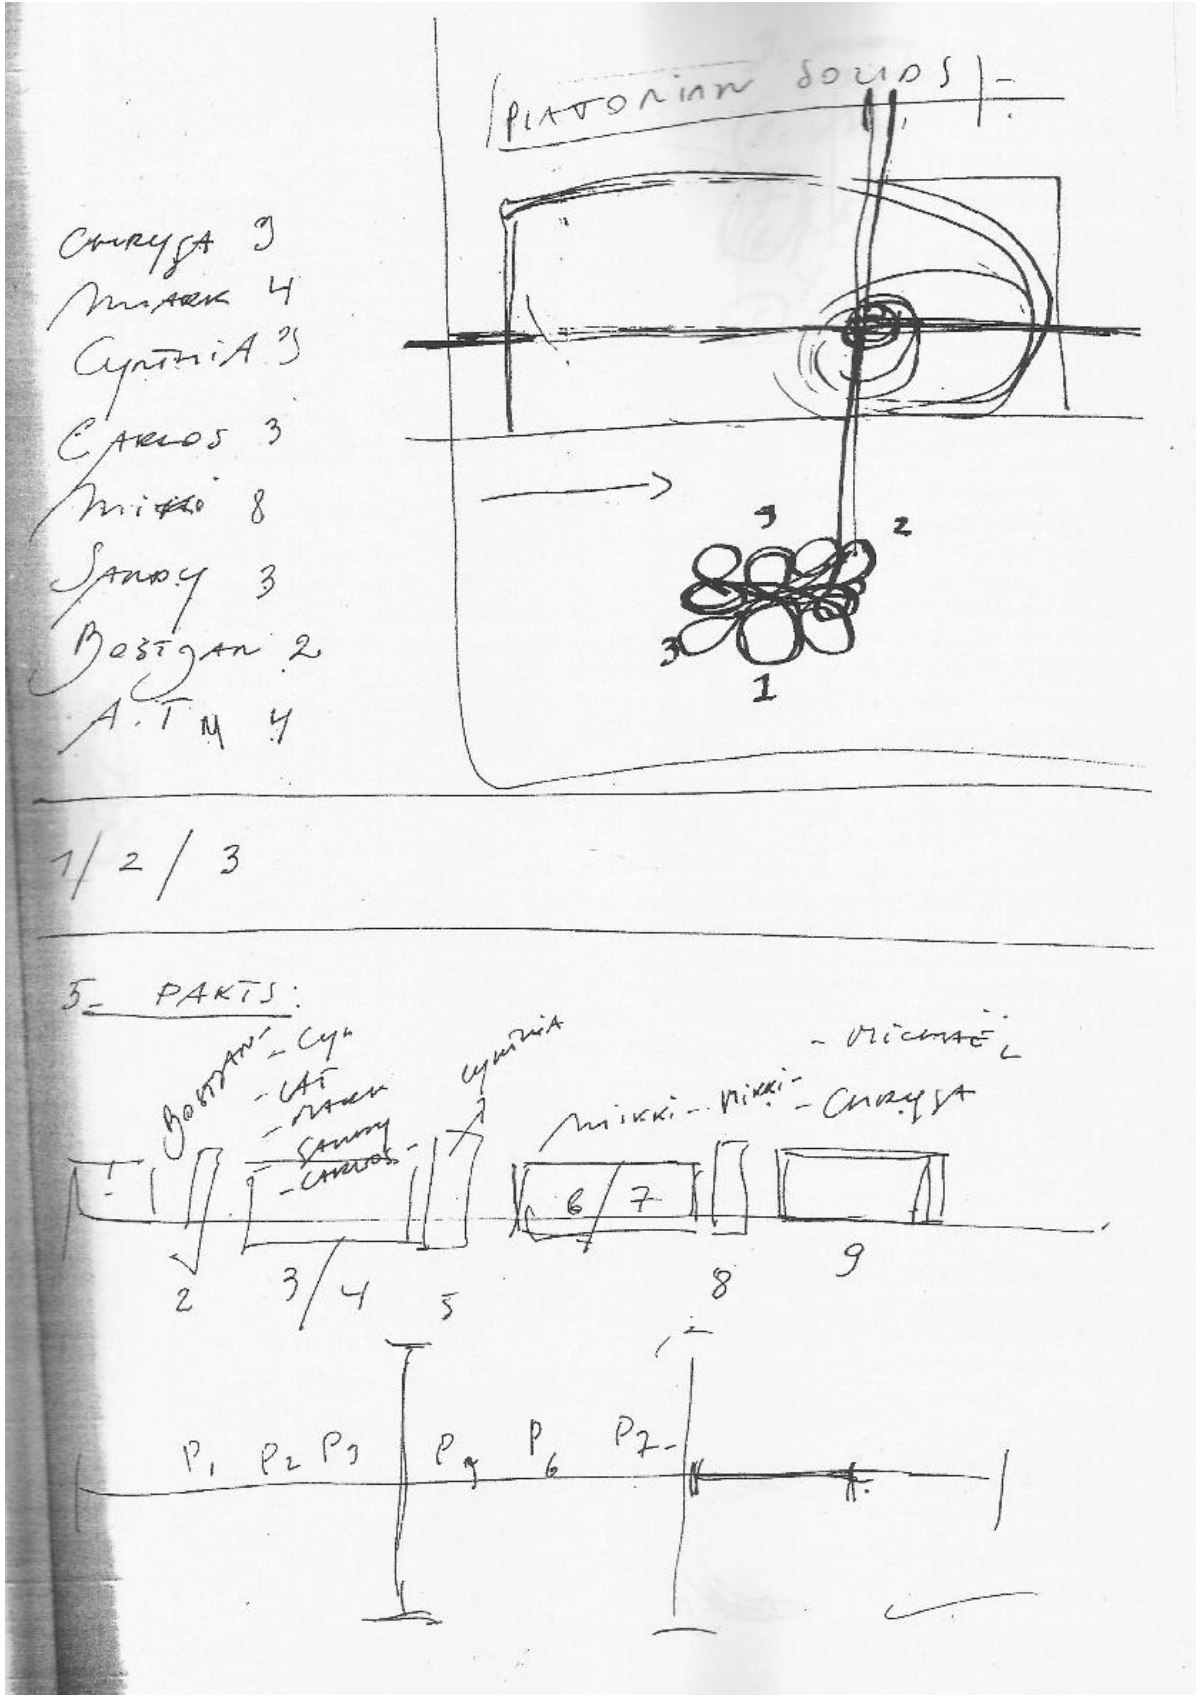 PLATONIAN SOLIDS
CHRYSA 3
MARK 4
CYNTHIA 3
CARLOS 3
MIKKI 8
SANDY 3
BOŠTJAN 2
A.T.M 4
2
3
1
1/2/3
5- PARTS:
BOSTJAN - Cyn
- CAT
- MARK
- SANDY
- CARLOS -
CYNTHIA
MIKKI - MIKKI -
- MICHAEL
- CHRYSA
6/7
2
3/4
5
8
9
P1 P2 P3
P6 P7-